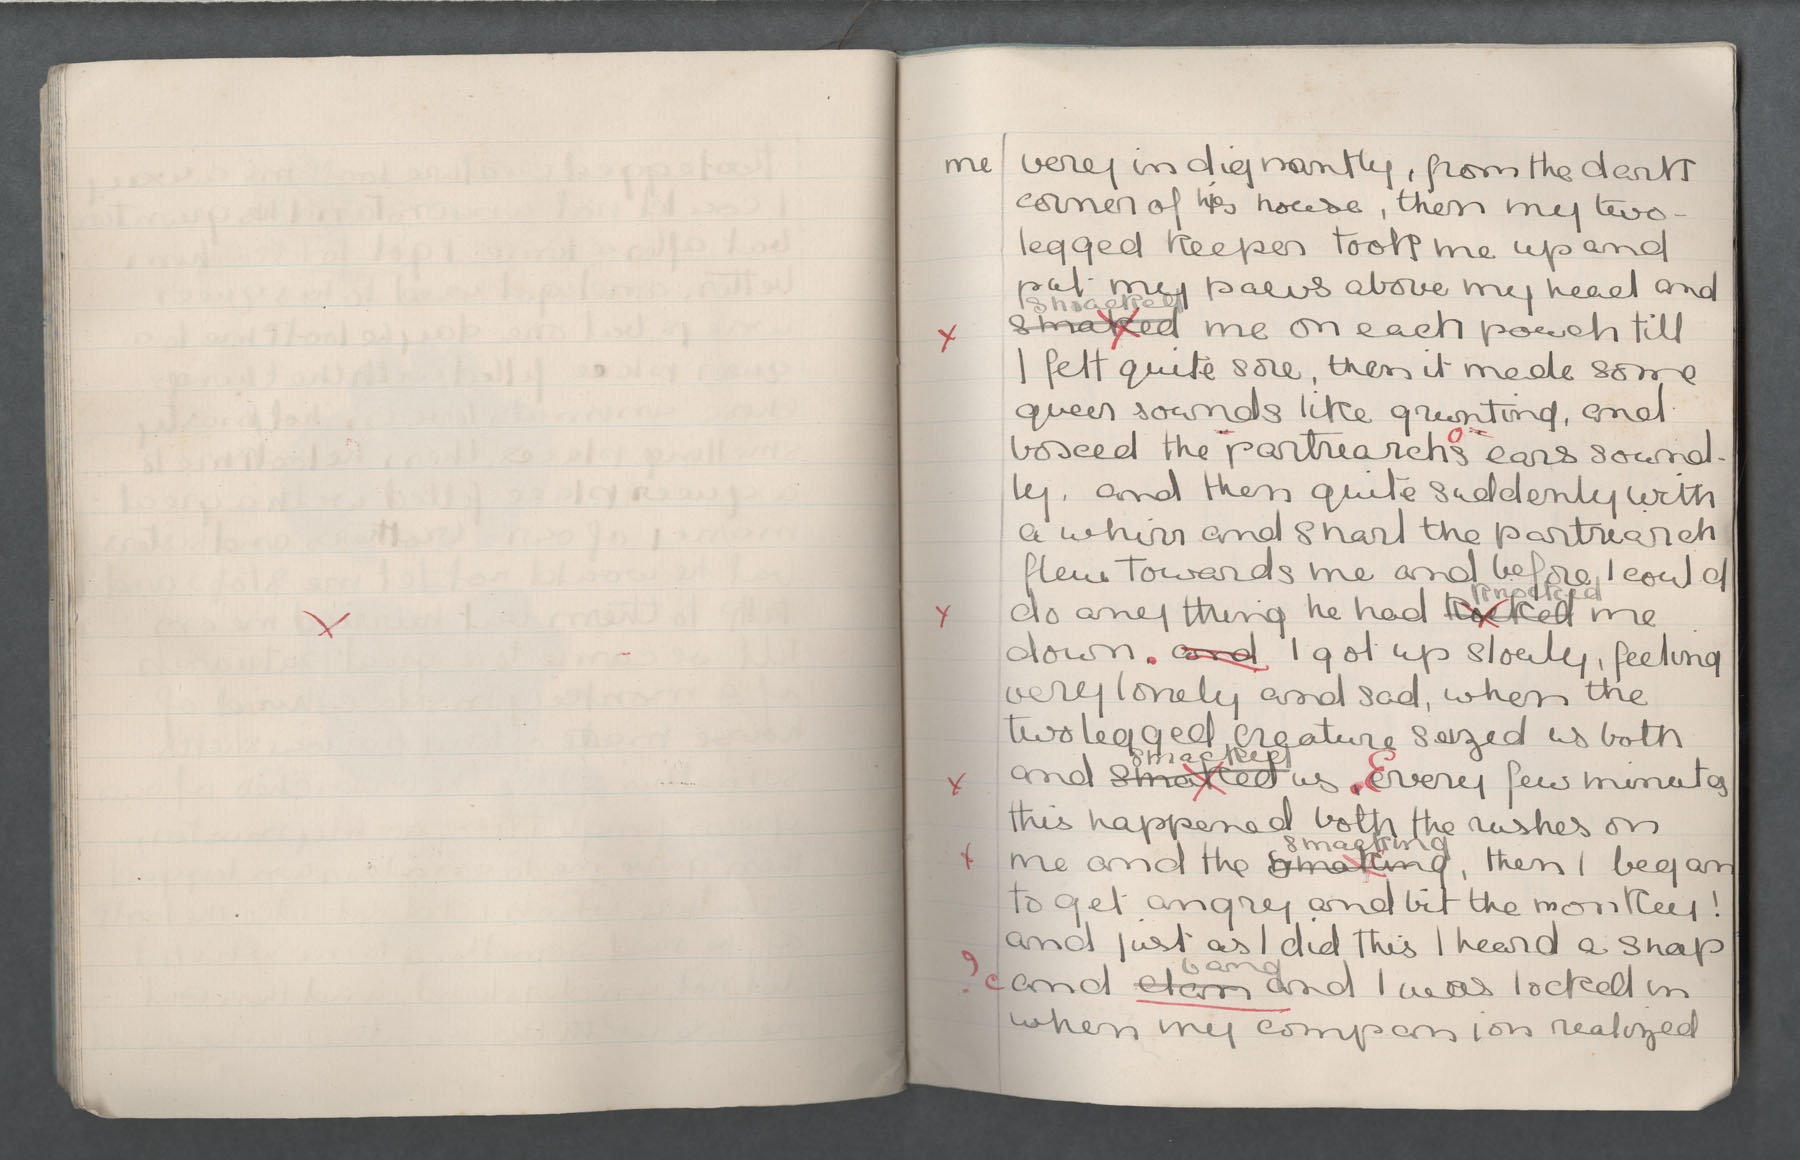 me very indignantly, from the dark
corner of his house, then my two-
legged keeper took me up and
put my paws above my head and
smacked
smaked me on each pouch till
I felt quite sore, then it made some
queer sounds like grunting, and
boxed the partriarch's ears sound-
ly. and then quite suddenly with
a whirr and snarl the partriarch
flew towards me and before I could
knocked
do any thing he had kocked me
down. and I got up slowly, feeling
very lonely and sad, when the
two legged creature seized us both
smacked
and smaked us. Every few minutes
this happened both the rushes on
smacking
me and the smaking, then I began
to get angry and bit the monkey!
and just as I did this I heard a snap
bang
? c and clam and I was locked in
when my companion realized